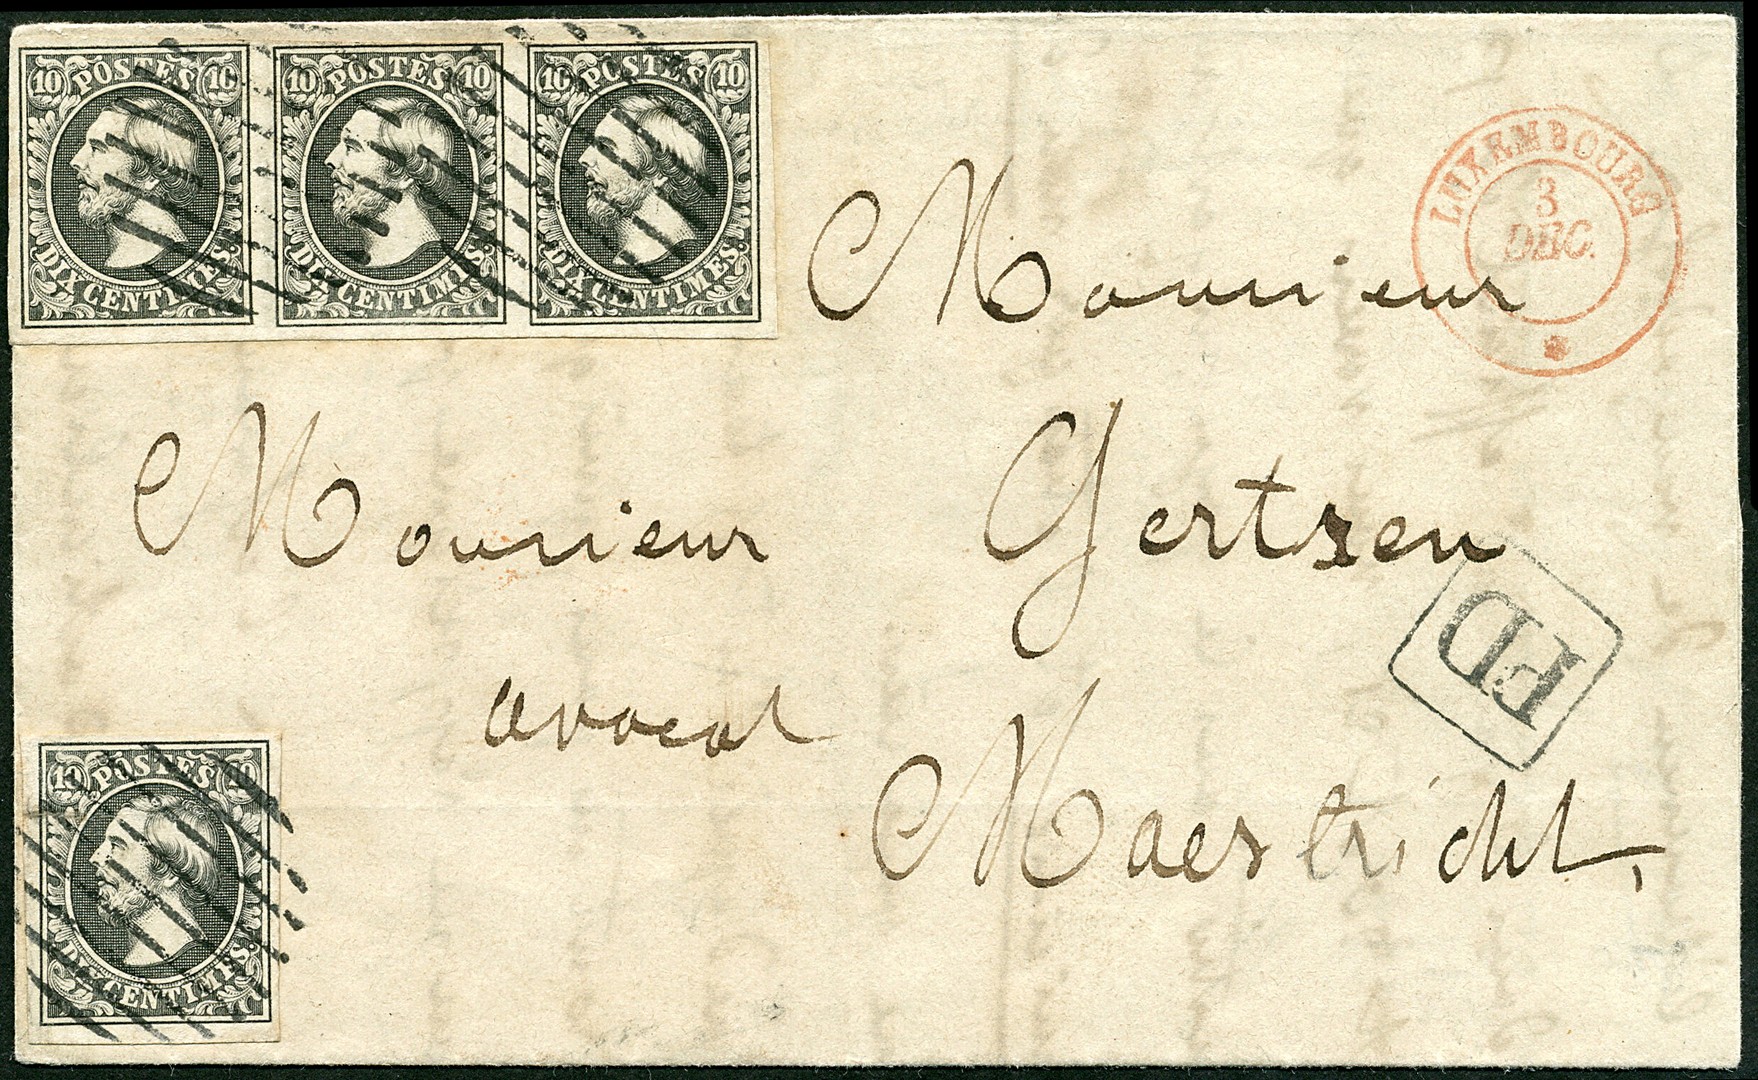 10 POSTES 10
DIX CENTIMES.
10 POSTES 10
DIX CENTIMES.
10 POSTES 10
DIX CENTIMES.
LUXEMBOURG
3
DEC.
Monsieur
Monsieur Gertsen
avocat
Maestricht
P.D
10 POSTES 10
DIX CENTIMES.